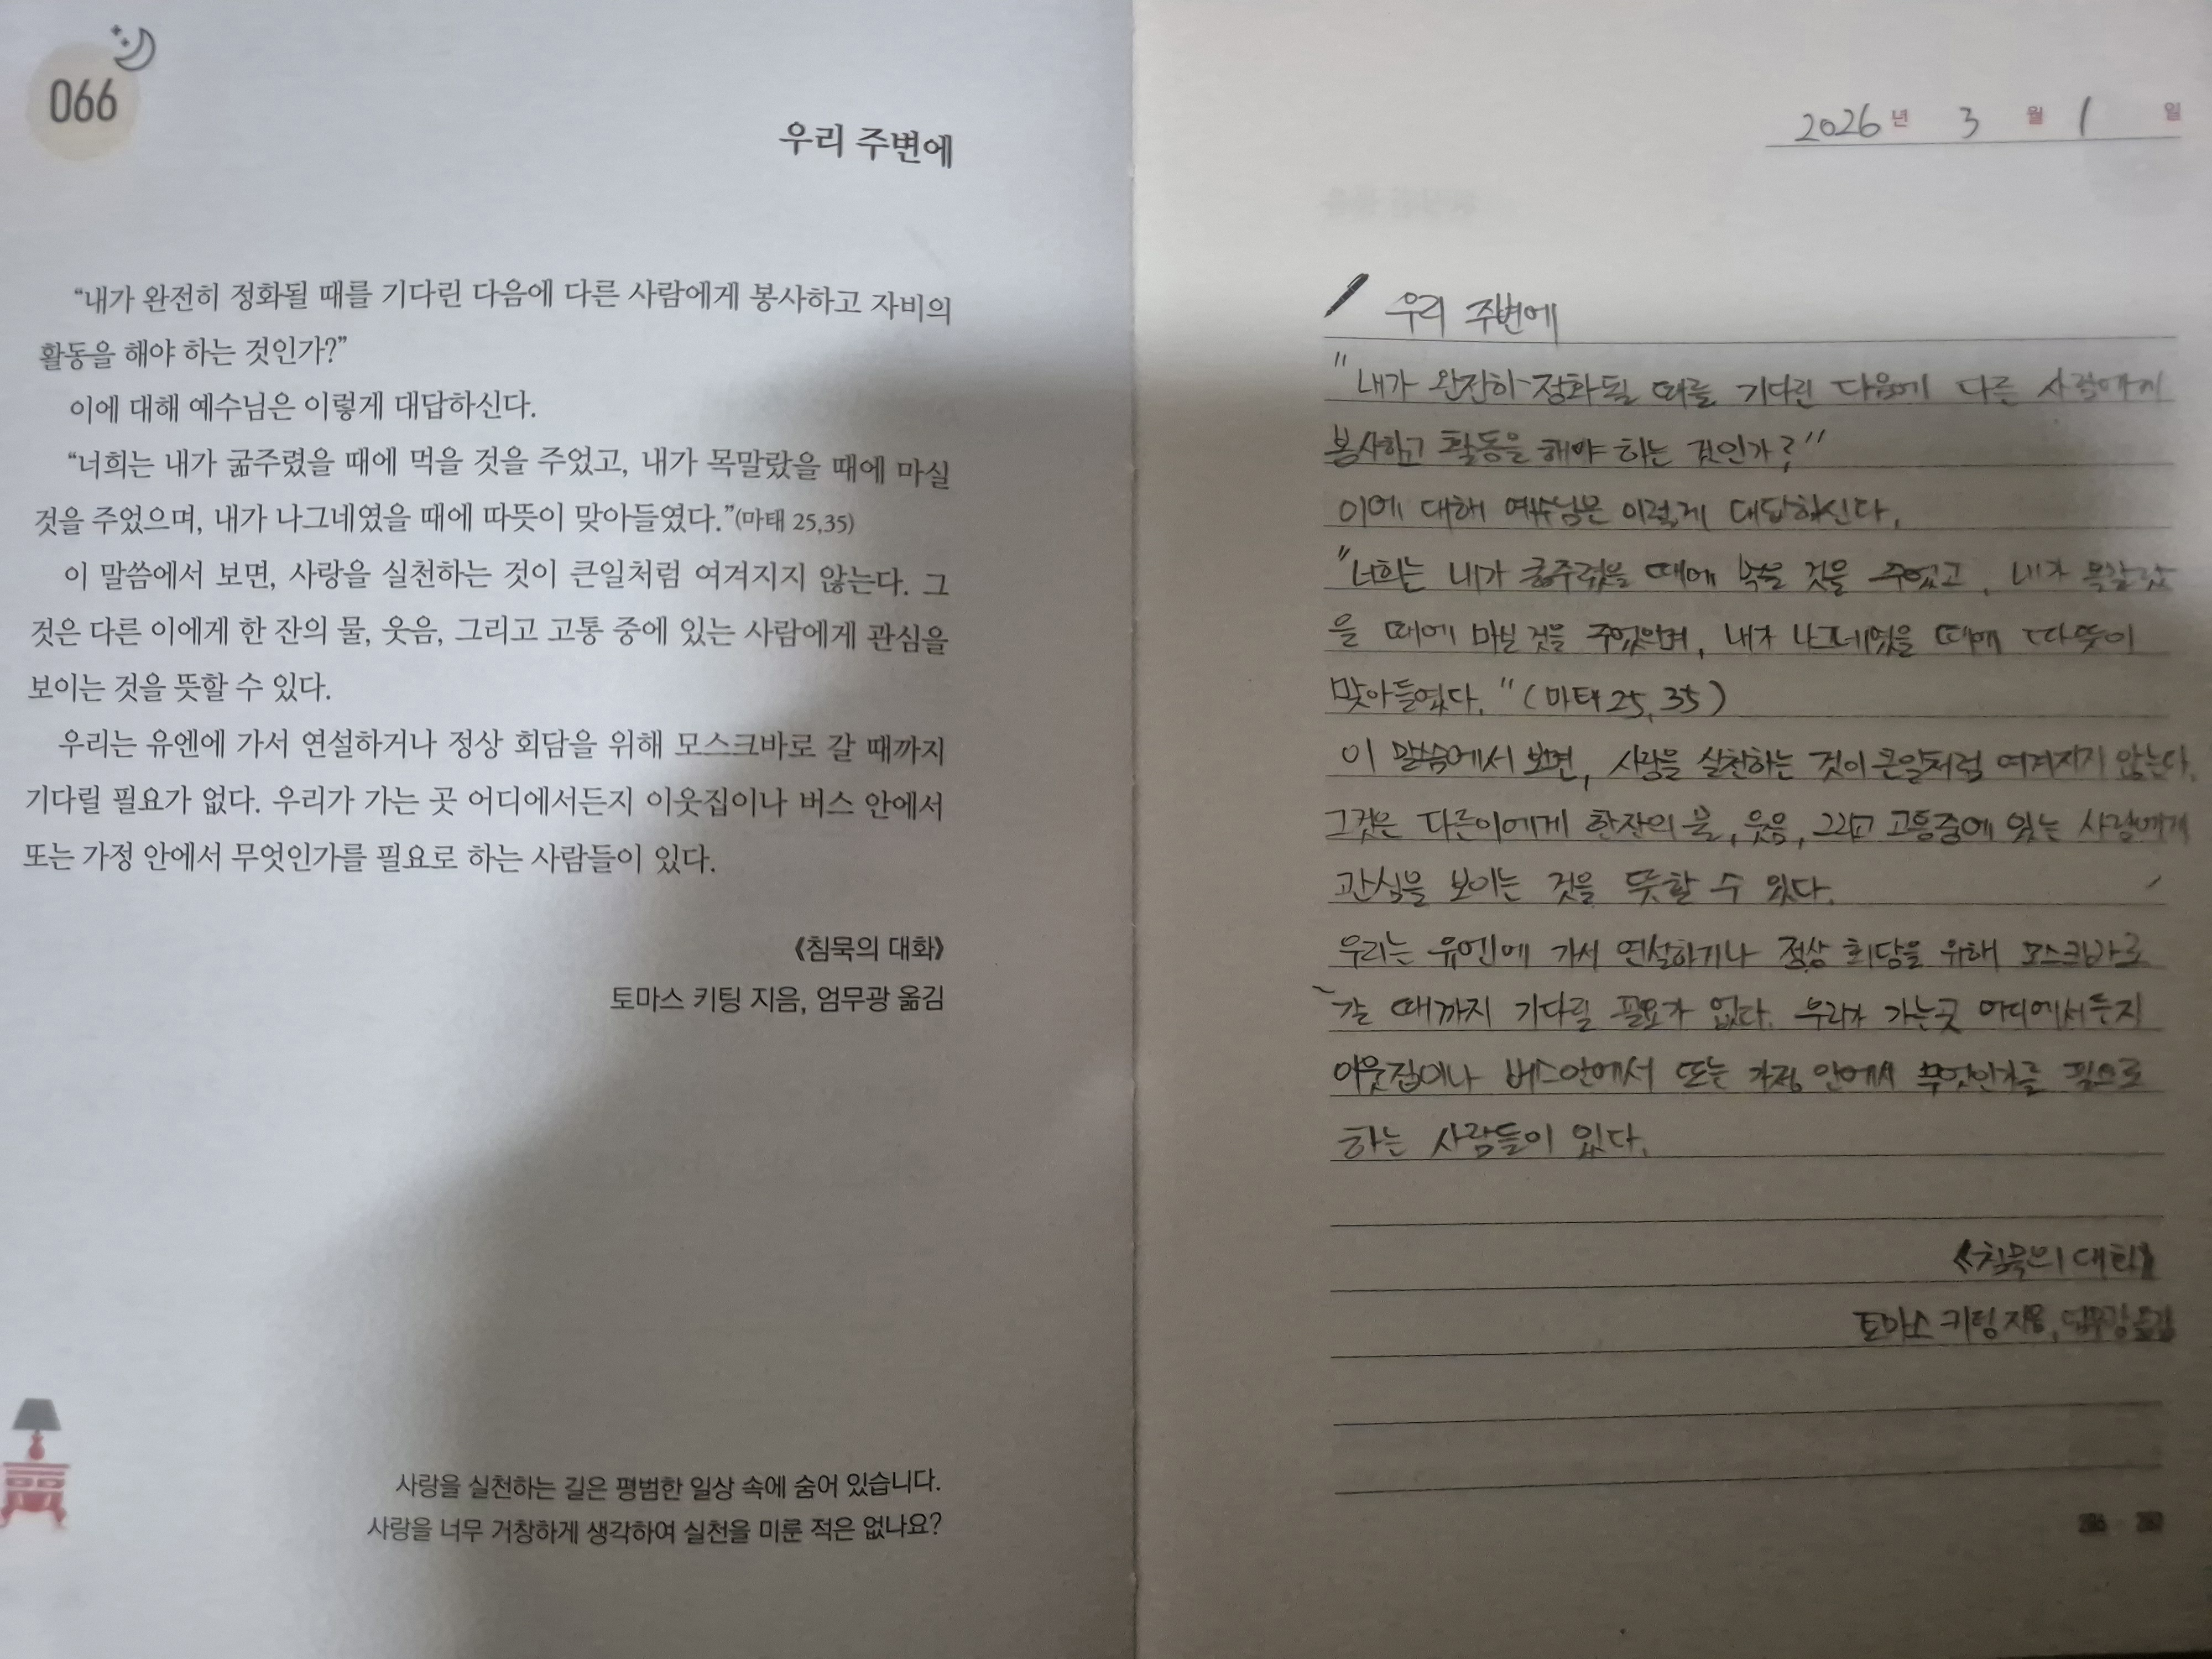 066
우리 주변에
“내가 완전히 정화될 때를 기다린 다음에 다른 사람에게 봉사하고 자비의
활동을 해야 하는 것인가?”
이에 대해 예수님은 이렇게 대답하신다.
“너희는 내가 굶주렸을 때에 먹을 것을 주었고, 내가 목말랐을 때에 마실
것을 주었으며, 내가 나그네였을 때에 따뜻이 맞아들였다.”(마태 25,35)
이 말씀에서 보면, 사랑을 실천하는 것이 큰일처럼 여겨지지 않는다. 그
것은 다른 이에게 한 잔의 물, 웃음, 그리고 고통 중에 있는 사람에게 관심을
보이는 것을 뜻할 수 있다.
우리는 유엔에 가서 연설하거나 정상 회담을 위해 모스크바로 갈 때까지
기다릴 필요가 없다. 우리가 가는 곳 어디에서든지 이웃집이나 버스 안에서
또는 가정 안에서 무엇인가를 필요로 하는 사람들이 있다.
《침묵의 대화》
토마스 키팅 지음, 엄무광 옮김
사랑을 실천하는 길은 평범한 일상 속에 숨어 있습니다.
사랑을 너무 거창하게 생각하여 실천을 미룬 적은 없나요?
2026년 3월 1일
우리 주변에
"내가 완전히 정화될 때를 기다린 다음에 다른 사람에게
봉사하고 활동을 해야 하는 것인가?"
이에 대해 예수님은 이렇게 대답하신다.
"너희는 내가 굶주렸을 때에 먹을 것을 주었고, 내가 목말랐
을 때에 마실 것을 주었으며, 내가 나그네였을 때에 따뜻이
맞아들였다."(마태 25,35)
이 말씀에서 보면, 사랑을 실천하는 것이 큰일처럼 여겨지지 않는다.
그것은 다른이에게 한잔의 물, 웃음, 그리고 고통중에 있는 사람에게
관심을 보이는 것을 뜻할 수 있다.
우리는 유엔에 가서 연설하거나 정상 회담을 위해 모스크바로
갈 때까지 기다릴 필요가 없다. 우리가 가는곳 어디에서든지
이웃집이나 버스안에서 또는 가정 안에서 무엇인가를 필요로
하는 사람들이 있다.
《침묵의 대화》
토마스 키팅 지음, 엄무광 옮김